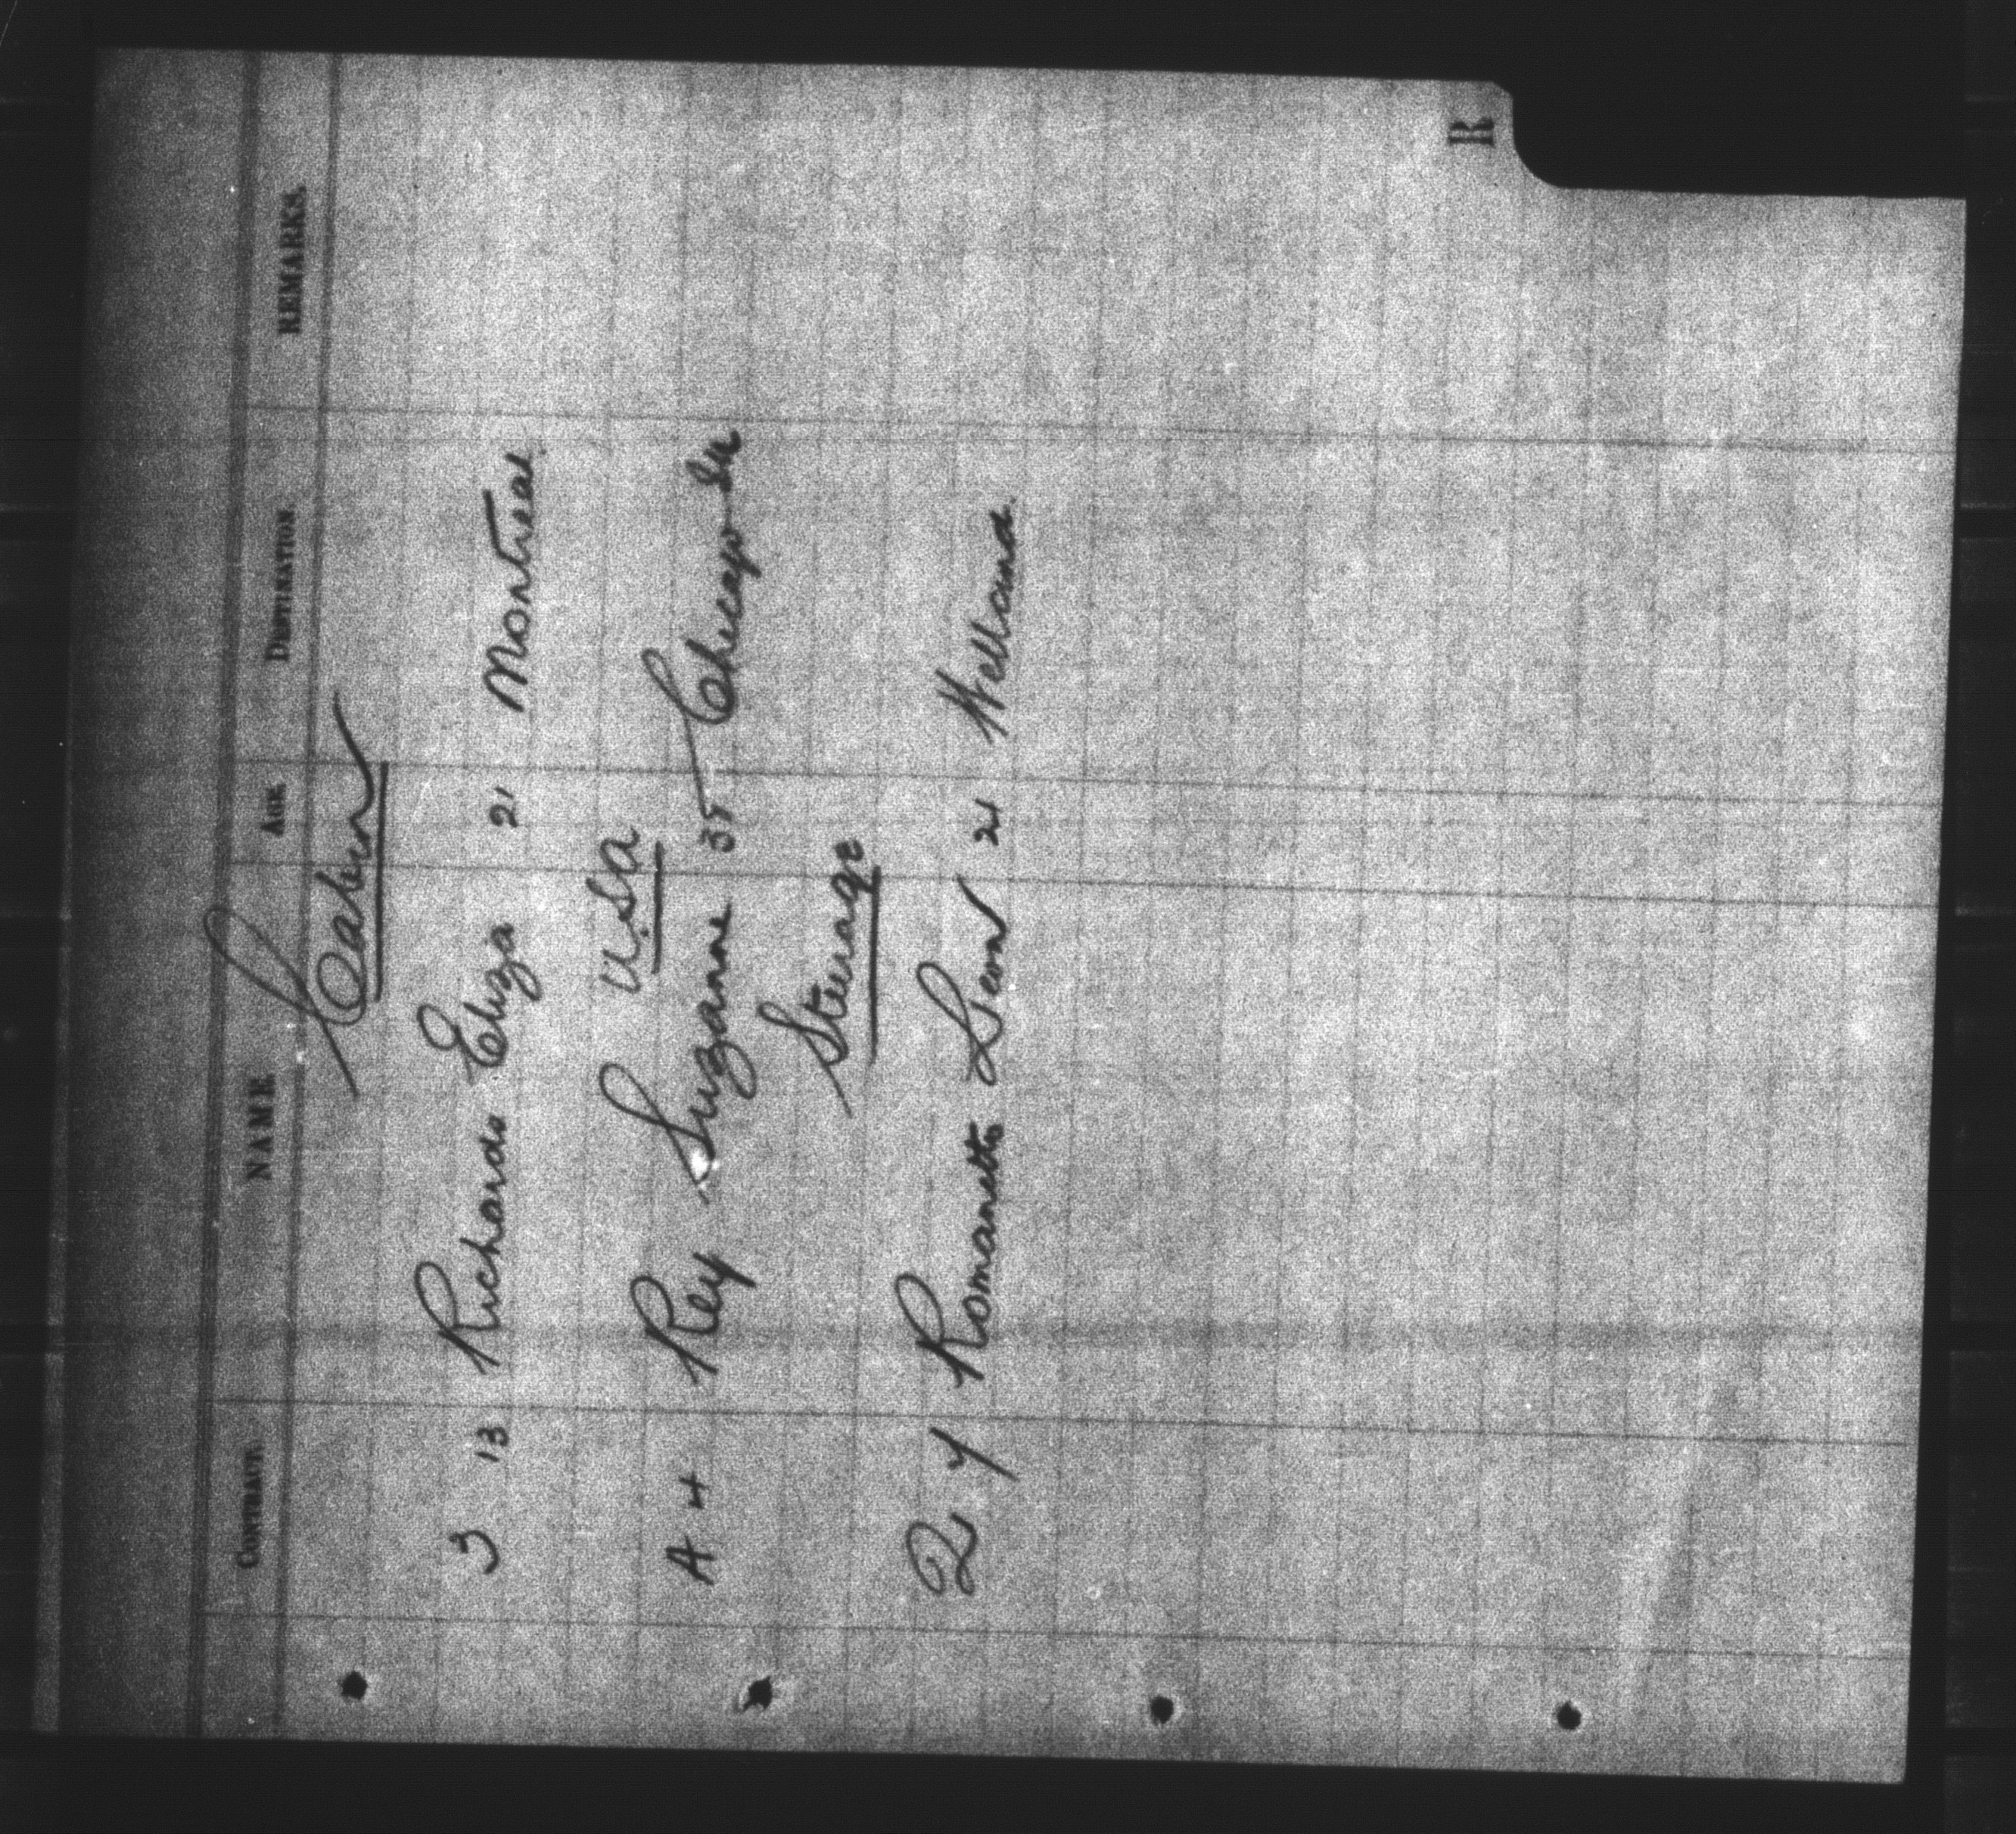 CONTRACT NAME AGE DESTINATION REMARKS.
Cabin
3 13 Richards Eliza 21 Montreal.
U.S.A
A 4 Rey Suzanne 35 Chicago Ill
Steerage
2 Y Romanetto Leon 21 Welland.
R